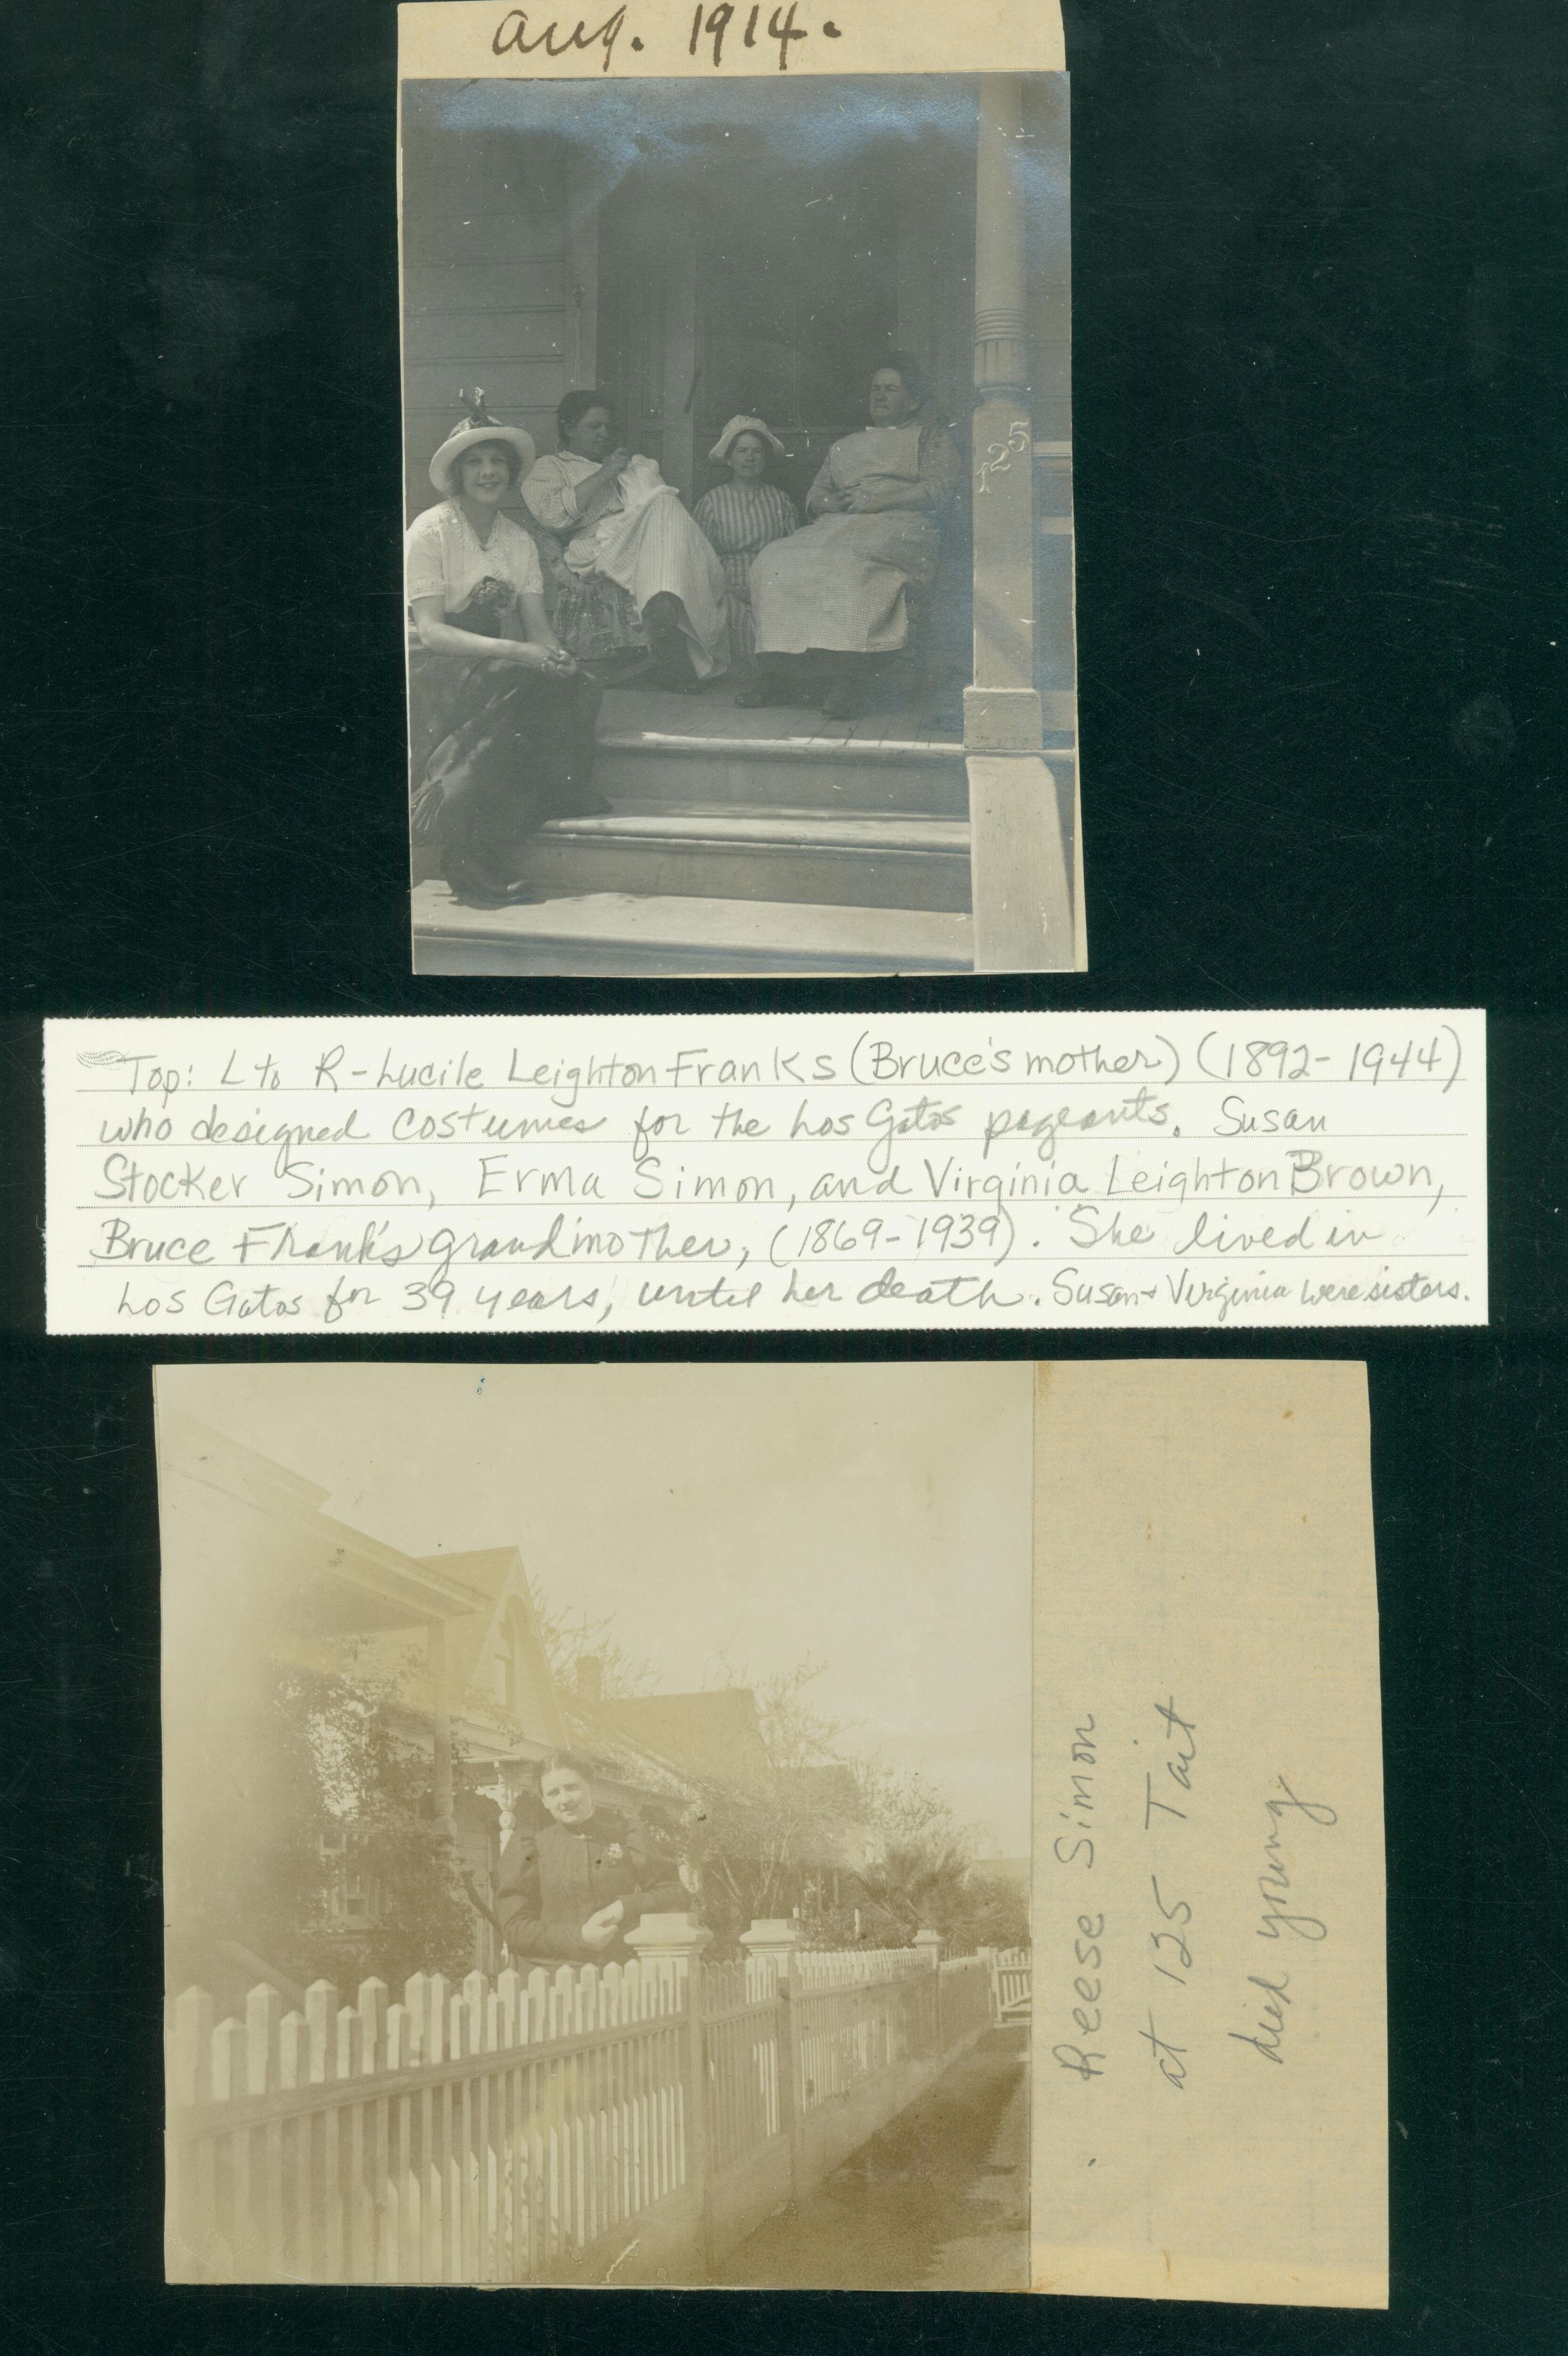 Aug. 1914.
125
Top: L to R - Lucile Leighton Franks (Bruce's mother) (1892-1944)
who designed costumes for the Los Gatos pageants. Susan
Stocker Simon, Erma Simon, and Virginia Leighton Brown,
Bruce Frank's grandmother, (1869-1939). She lived in
Los Gatos for 39 years, until her death. Susan + Virginia were sisters.
Reese Simon
at 125 Tait
died young